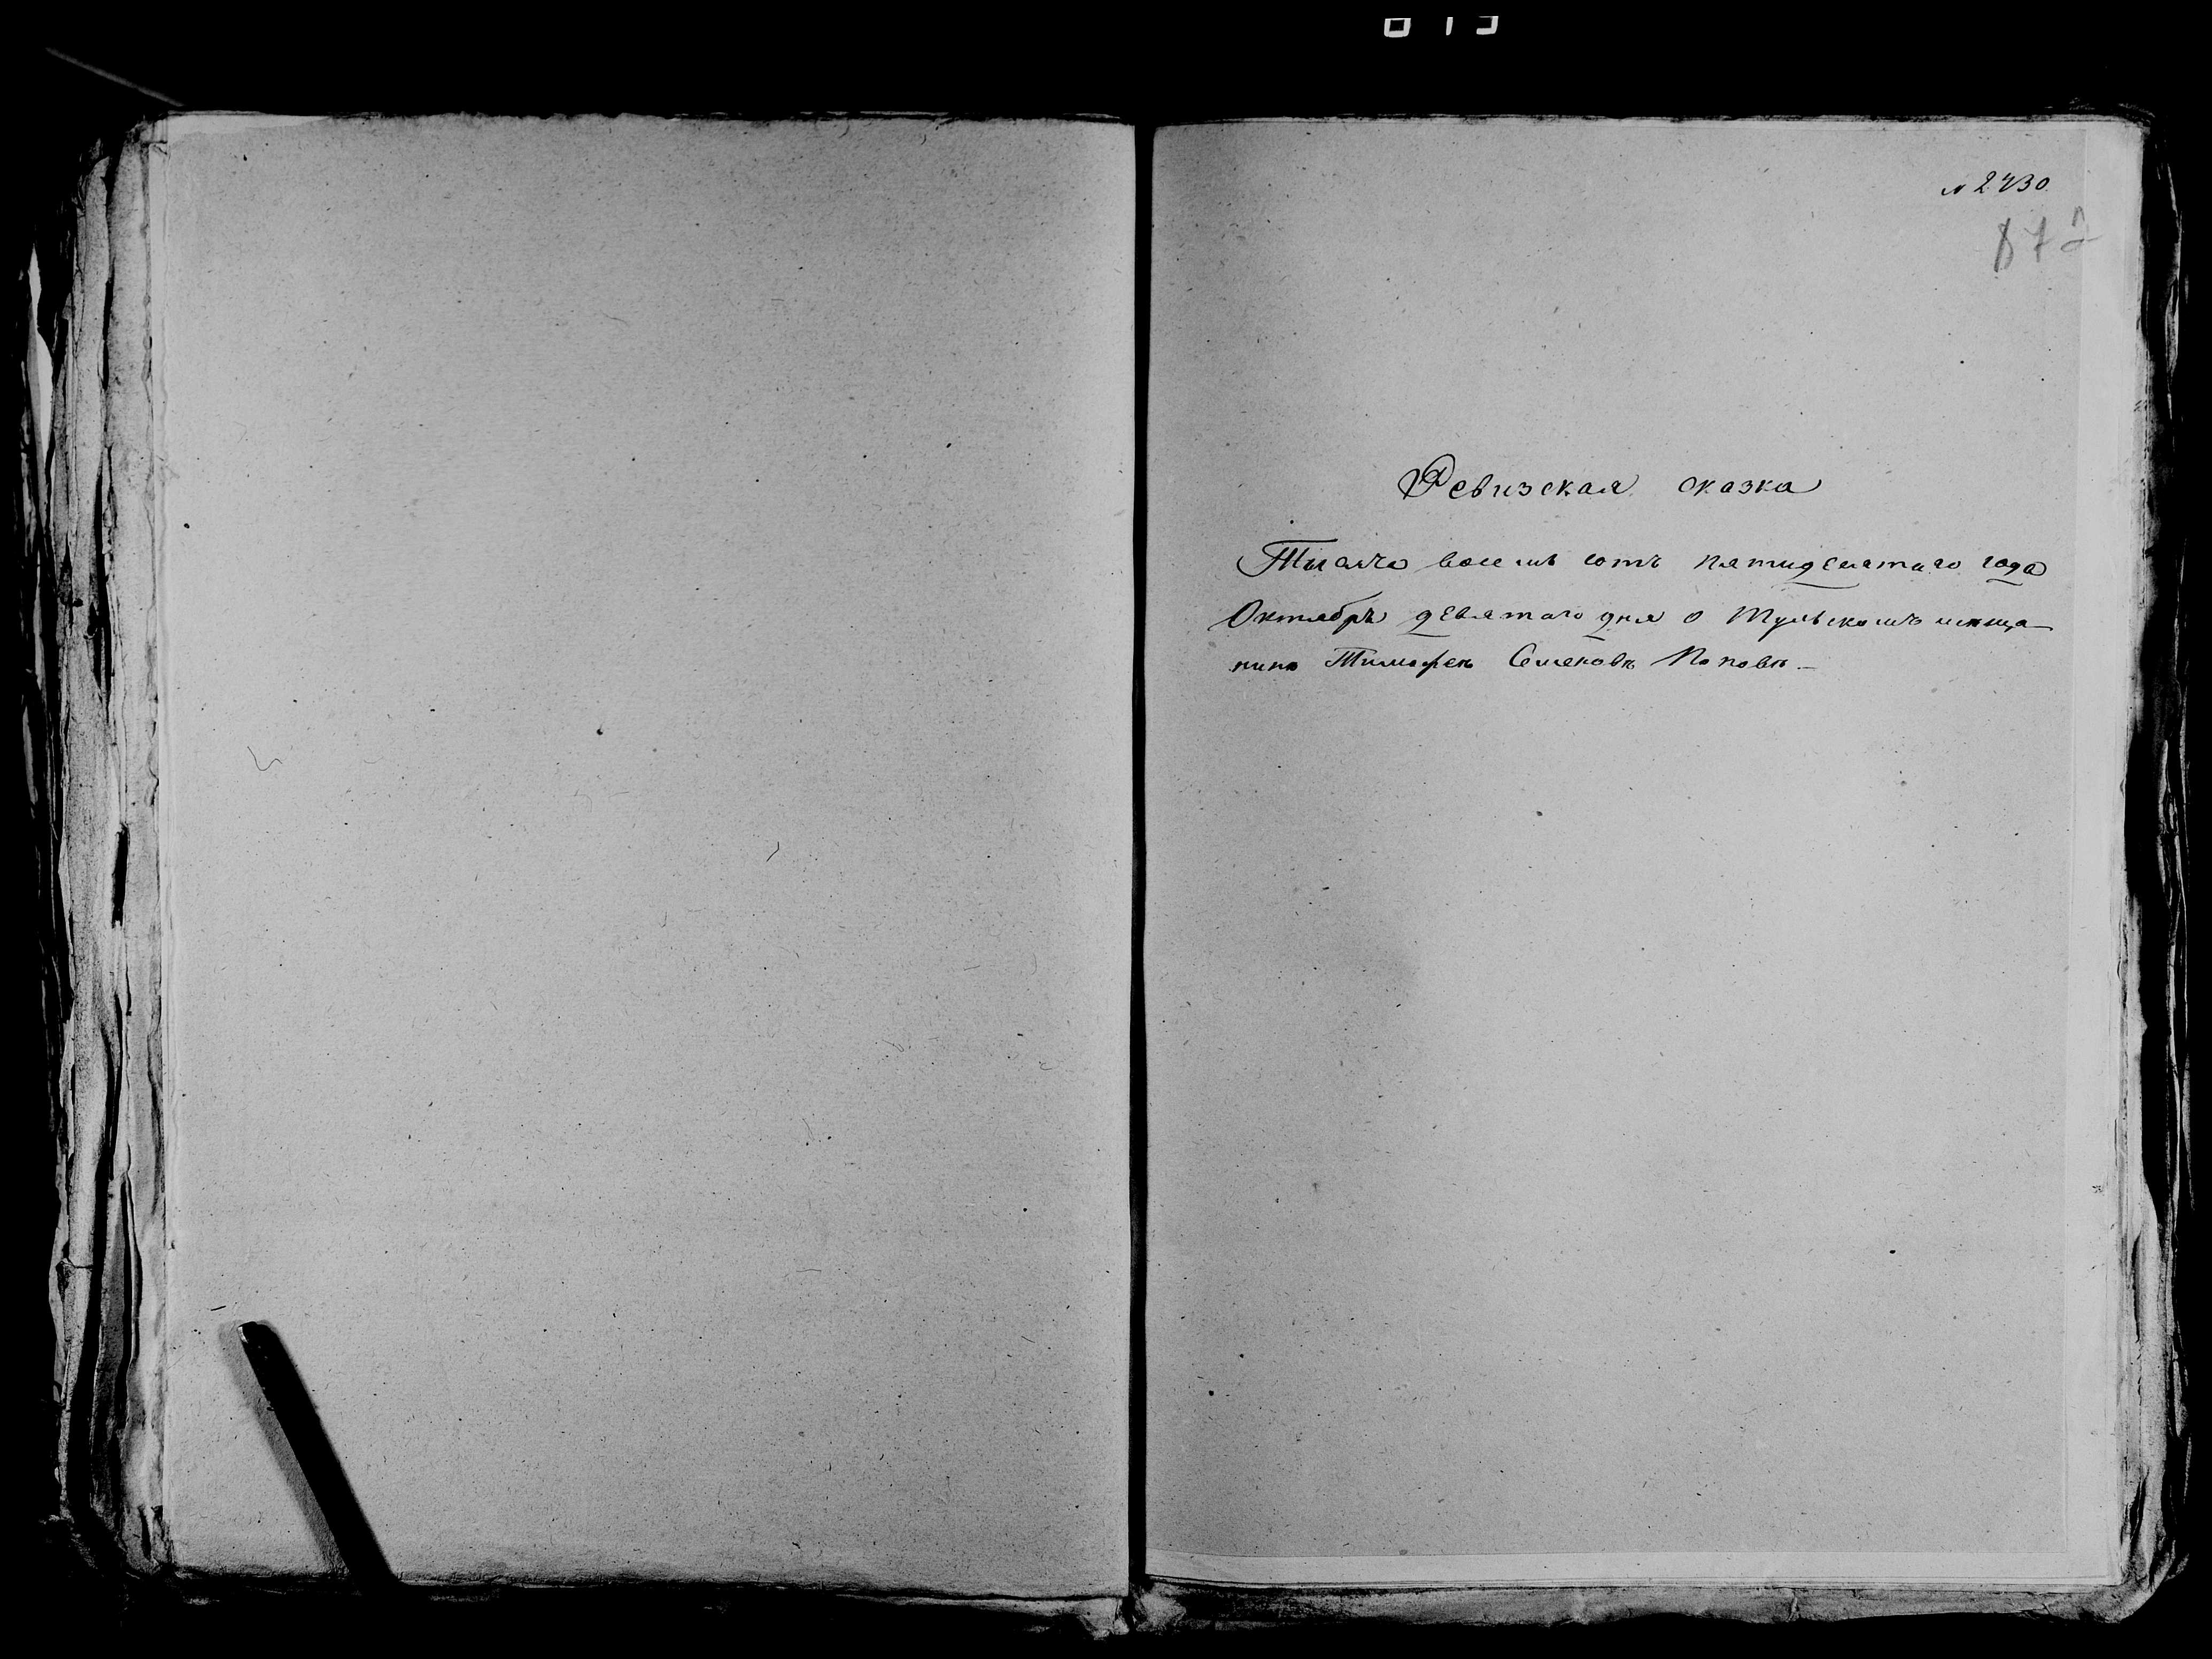 № 2430
872
Ревизская сказка
Тысяча восемь сотъ пятидесятаго года
Октября девятаго дня о Тульскомъ мѣща-
нинѣ Тимофеѣ Семеновѣ Поповѣ.